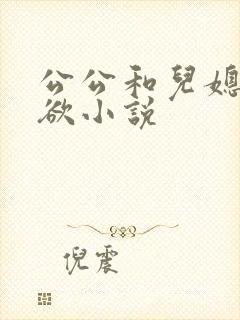 公公和兒媳
欲小說
倪震